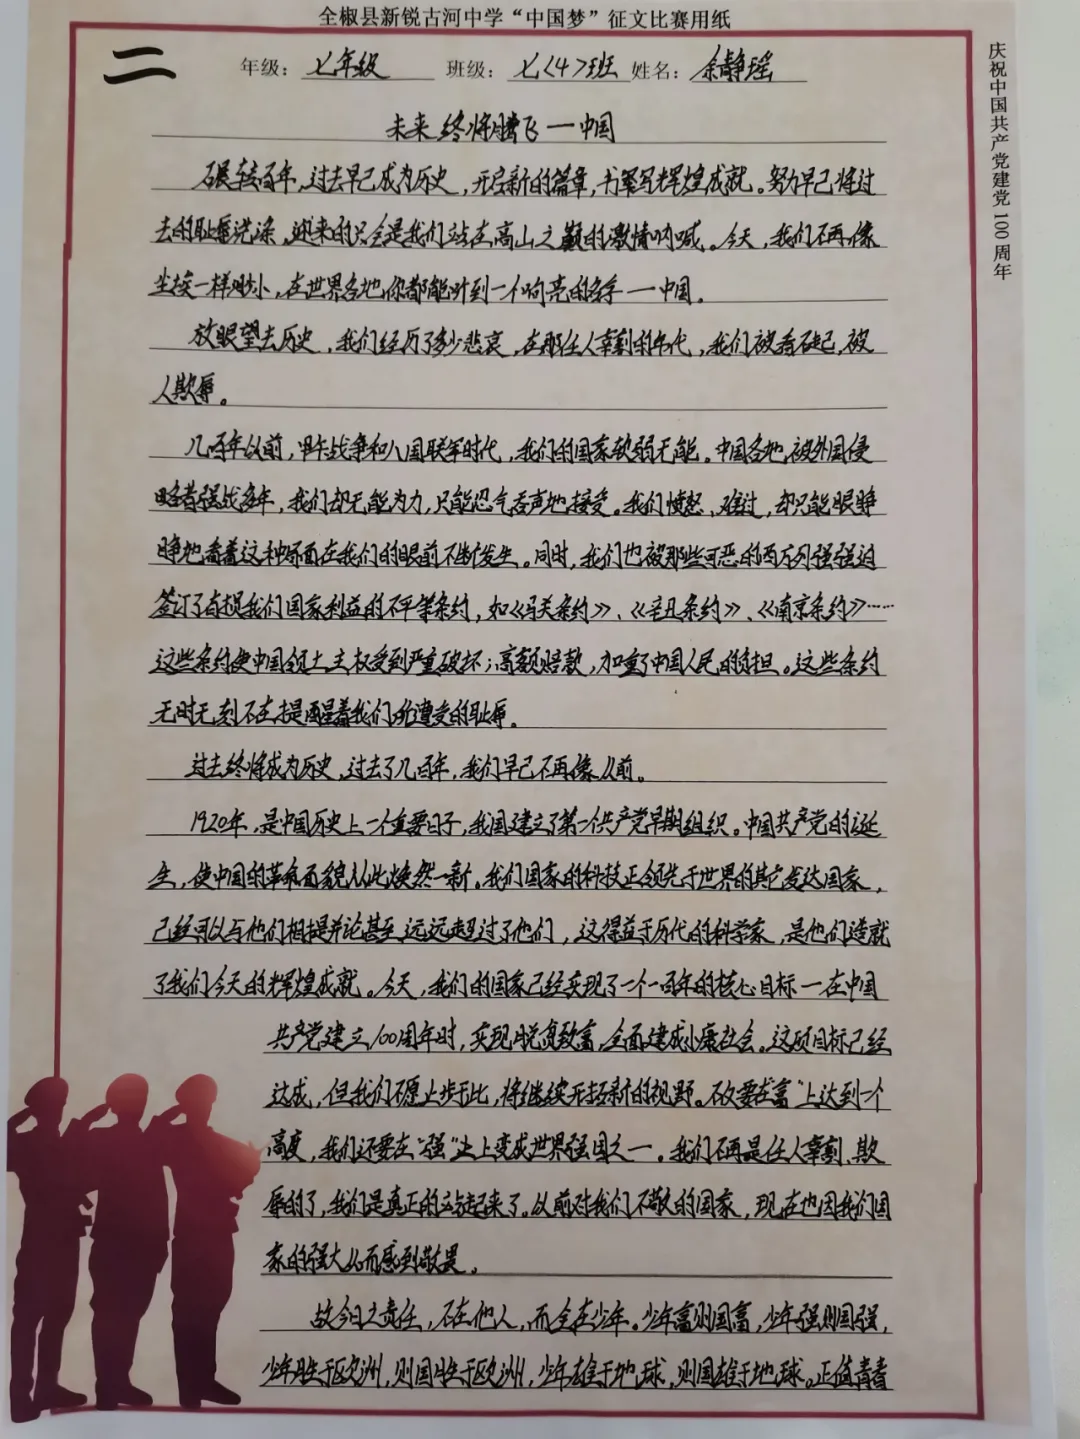 全椒县新锐古河中学“中国梦”征文比赛用纸
二
年级：七年级 班级：七<4>班 姓名：余静瑶
庆祝中国共产党建党100周年
未来 终将腾飞一中国
碾转百年，过去早已成为历史，开启新的篇章，书写辉煌成就。努力早已将过
去的耻辱洗涤，迎来的只会是我们站在高山之巅的激情呐喊。今天，我们不再像
尘埃一样渺小，在世界各地你都能听到一个响亮的名字一中国。
放眼望去历史，我们经历了多少悲哀，在那任人宰割的年代，我们被看不起，被
人欺辱。
几百年以前，甲午战争和八国联军时代，我们的国家软弱无能。中国各地被外国侵
略者强战多年，我们却无能为力，只能忍气吞声地接受。我们愤怒、难过，却只能眼睁
睁地看着这种场面在我们的眼前不断发生。同时，我们也被那些可恶的西方列强强迫
签订了有损我们国家利益的不平等条约，如《马关条约》、《辛丑条约》、《南京条约》……
这些条约使中国领土主权受到严重破坏；高额赔款，加重了中国人民的负担。这些条约
无时无刻不在提醒着我们所遭受的耻辱。
过去终将成为历史，过去了几百年，我们早已不再像从前。
1920年，是中国历史上一个重要日子，我国建立了第一个共产党早期组织。中国共产党的诞
生，使中国的革命面貌从此焕然一新。我们国家的科技正领先于世界的其它发达国家，
已经可以与他们相提并论甚至远远超过了他们，这得益于历代的科学家，是他们造就
了我们今天的辉煌成就。今天，我们的国家已经实现了一个一百年的核心目标一在中国
共产党建立100周年时，实现脱贫致富，全面建成小康社会。这项目标已经
达成，但我们不愿止步于此，将继续开拓新的视野。不仅要在“富”上达到一个
高度，我们还要在“强”业上变成世界强国之一。我们不再是任人宰割、欺
辱的了，我们是真正的站起来了。从前对我们不敬的国家，现在也因我们国
家的强大从而感到敬畏。
故今日之责任，不在他人，而全在少年。少年富则国富，少年强则国强，
少年胜于欧洲，则国胜于欧洲，少年雄于地球，则国雄于地球。正值青春